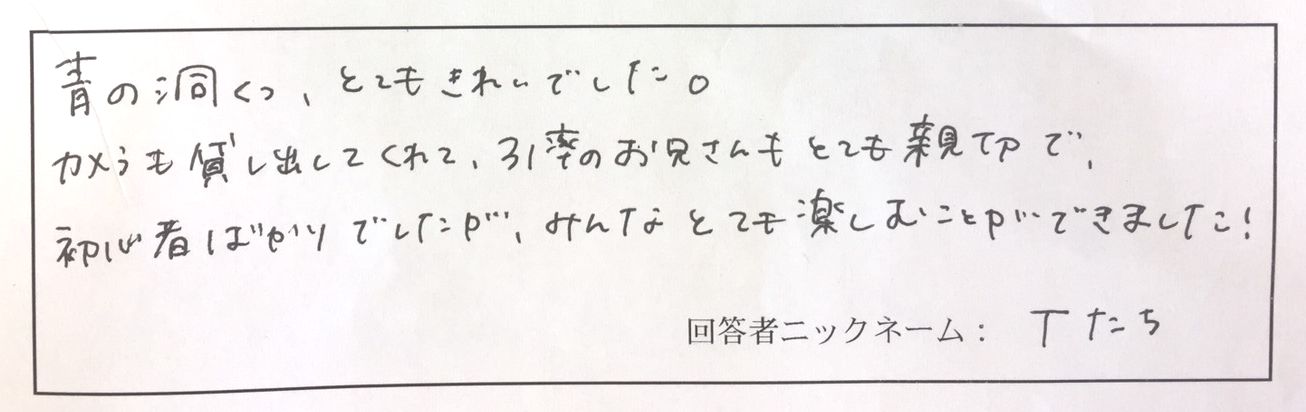 青の洞くつ、とてもきれいでした。
カメラも貸し出してくれて、引率のお兄さんもとても親切で、
初心者ばかりでしたが、みんなとても楽しむことができました!
回答者ニックネーム: Tたち